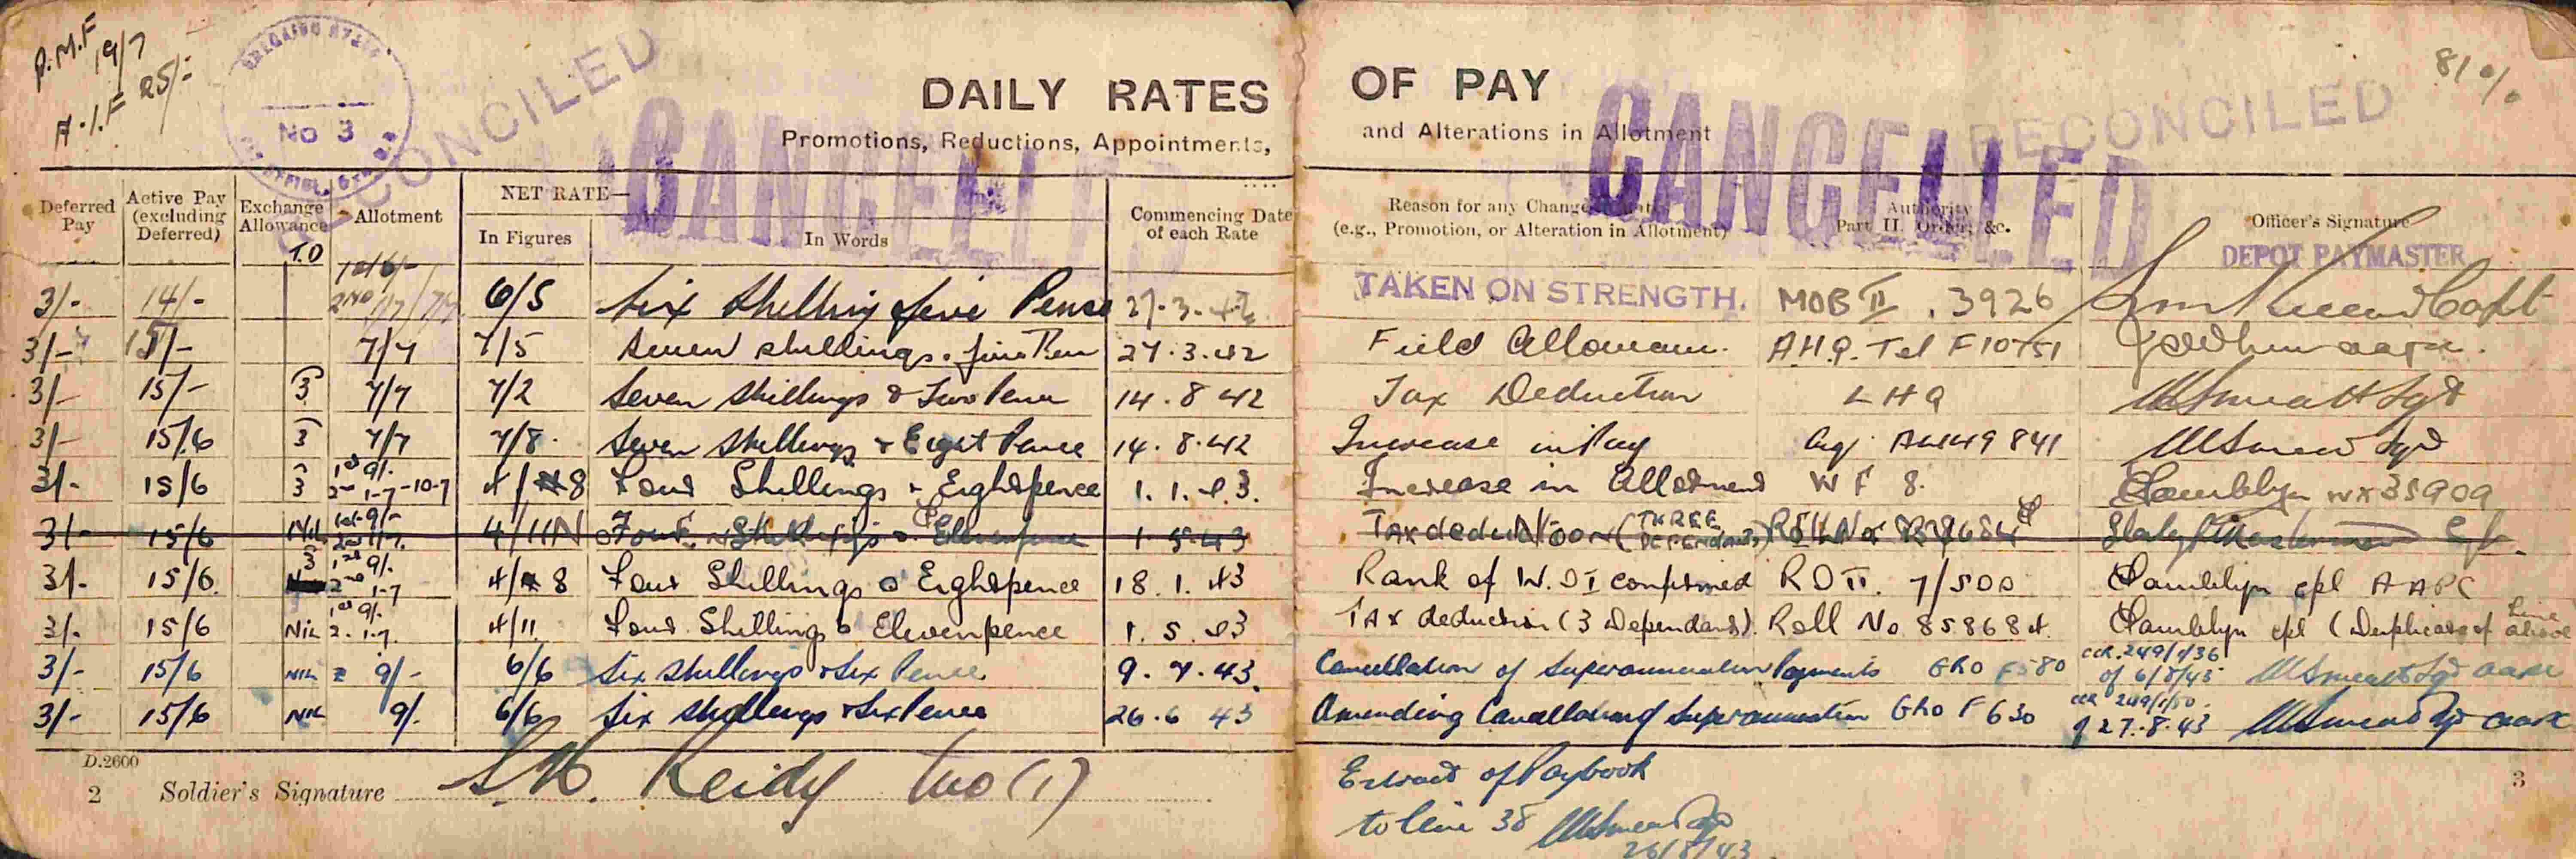 P.M.F 19/7
A.I.F 25/-
No 3
RECONCILED
CANCELLED
DAILY RATES OF PAY
81
CANCELLED
RECONCILED
Promotions, Reductions, Appointments, and Alterations in Allotment
Deferred Pay
Active Pay (excluding Deferred)
Exchange Allowance
Allotment
NET RATE—
In Figures
In Words
Commencing Date of each Rate
Reason for any Change
(e.g., Promotion, or Alteration in Allotment)
Authority Part II. Order, &c.
Officer's Signature
DEPOT PAYMASTER
T.D
3/- 14/- 6/5 Six Shelling five Pense 27.3.42 TAKEN ON STRENGTH. MOB II. 3926 Capt
3/- 15/- 7/7 7/5 Seven shillings. five Pen 27.3.42 Field Allowance. AHQ. Tel F10751
3/- 15/- 3 7/7 7/2 Seven Shillings & Two Pence 14.8 42 Tax Deduction LHQ Sgt
3/- 15/6 3 7/7 7/8 Seven Shillings & Eight Pence 14.8.42 Increase in Pay Sgt
3/- 15/6 3 1st 9/- 2nd 1-7 -10-7 4/8 Four Shillings & Eightpence 1.1.43. Increase in Allotment W F 8. WX35909
3/- 15/6 Nil 1st 9/- 2nd 1-7 4/11 Four Shillings & Elevenpence 1 5-43 Tax deduction (THREE DEPENDANTS) Roll No
3/- 15/6 3 1st 9/. 2nd 1-7 4/8 Four Shillings & Eightpence 18.1.43 Rank of W.O I confirmed RO II. 7/500 cpl AAPC
3/- 15/6 Nil 1st 9/. 2. 1-7. 4/11 Four Shillings & Elevenpence 1.5.43 Tax deduction (3 Dependants). Roll No 858684. cpl (Duplicate of line above
3/- 15/6 NIL 9/- 6/6 Six shillings & Six Pence 9.7.43. Cancellation of Superannuation Payments GRO F580 CCR. 249/1/36 of 6/8/43 Sgt aapc
3/- 15/6 NIL 9/. 6/6 Six shillings & Six Pence 26.6 43 Amending Cancellation of Superannuation GRO F 630 CCR 249/1/50. of 27.8.43 Sgt aapc
D.2600
2 Soldier's Signature Reidy WO (1)
Extract of Paybook
to line 38
26/8/43
3